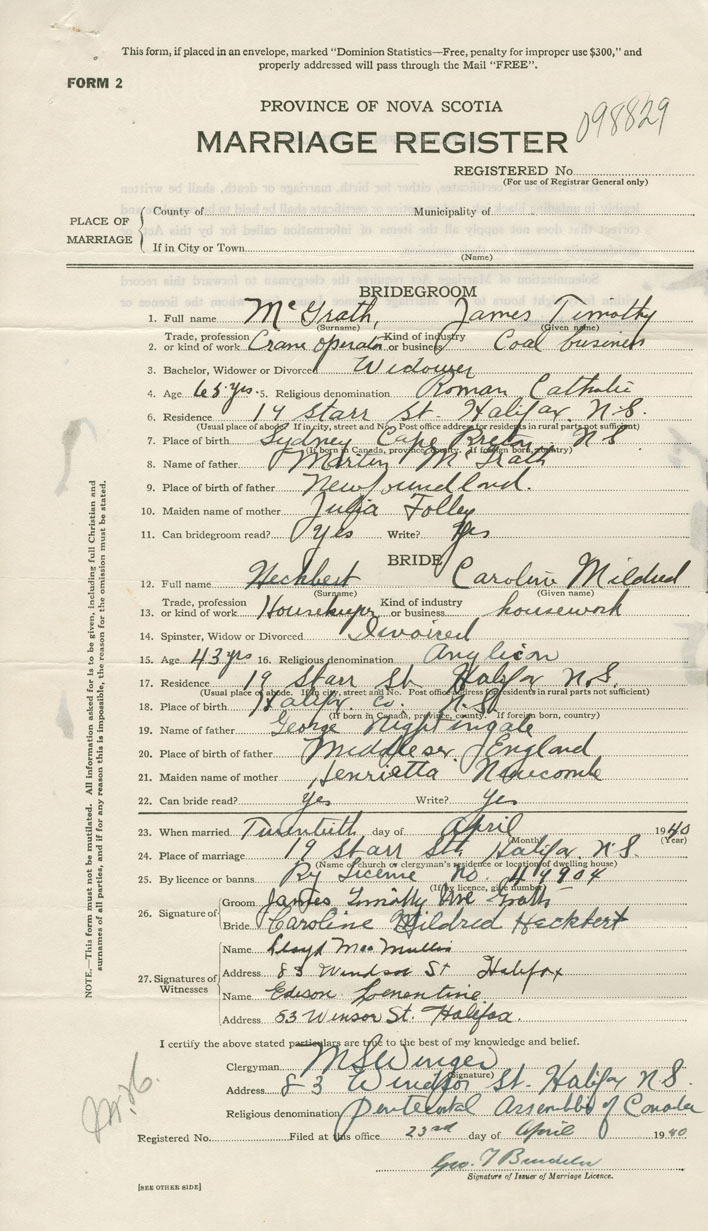 This form, if placed in an envelope, marked "Dominion Statistics—Free, penalty for improper use $300," and
properly addressed will pass through the Mail "FREE".
FORM 2
PROVINCE OF NOVA SCOTIA
098829
MARRIAGE REGISTER
REGISTERED No.
(For use of Registrar General only)
PLACE OF MARRIAGE
County of Municipality of
If in City or Town
(Name)
BRIDEGROOM
1. Full name McGrath, James Timothy
(Surname) (Given name)
2. Trade, profession or kind of work Crane operator Kind of industry or business Coal business
3. Bachelor, Widower or Divorced Widower
4. Age 65 yrs. 5. Religious denomination Roman Catholic
6. Residence 19 Starr St. Halifax, N.S.
(Usual place of abode. If in city, street and No. Post office address for residents in rural parts not sufficient)
7. Place of birth Sydney, Cape Breton, N S
(If born in Canada, province, county. If foreign born, country)
8. Name of father Martin McGrath
9. Place of birth of father Newfoundland.
10. Maiden name of mother Julia Folley
11. Can bridegroom read? Yes Write? Yes
BRIDE
12. Full name Heckbert Caroline Mildred
(Surname) (Given name)
13. Trade, profession or kind of work Housekeeper Kind of industry or business housework
14. Spinster, Widow or Divorced Divorced
15. Age 43 yrs 16. Religious denomination Anglican
17. Residence 19 Starr St Halifax N.S.
(Usual place of abode. If in city, street and No. Post office address for residents in rural parts not sufficient)
18. Place of birth Halifax Co. N.S.
(If born in Canada, province, county. If foreign born, country)
19. Name of father George Nightingale
20. Place of birth of father Middlesex, England
21. Maiden name of mother Henrietta Newcombe
22. Can bride read? Yes Write? Yes
23. When married Twentieth day of April 1940
(Month) (Year)
24. Place of marriage 19 Starr St. Halifax, N.S.
(Name of church or clergyman's residence or location of dwelling house)
25. By licence or banns. By License No. 44904
(If by licence, give number)
26. Signature of
Groom James Timothy Mc Grath
Bride Caroline Mildred Heckbert
27. Signatures of Witnesses
Name Lloyd MacMullin
Address 83 Windsor St Halifax
Name Edison
Address 53 Winsor St. Halifax.
I certify the above stated particulars are true to the best of my knowledge and belief.
Clergyman M S Winger
(Signature)
Address 83 Windsor St. Halifax N S.
Religious denomination Pentecostal Assemblies of Canada
Registered No. Filed at this office 23rd day of April 1940
Geo. T
Signature of Issuer of Marriage Licence.
[SEE OTHER SIDE]
NOTE.—This form must not be mutilated. All information asked for is to be given, including full Christian and
surnames of all parties, and if for any reason this is impossible, the reason for the omission must be stated.